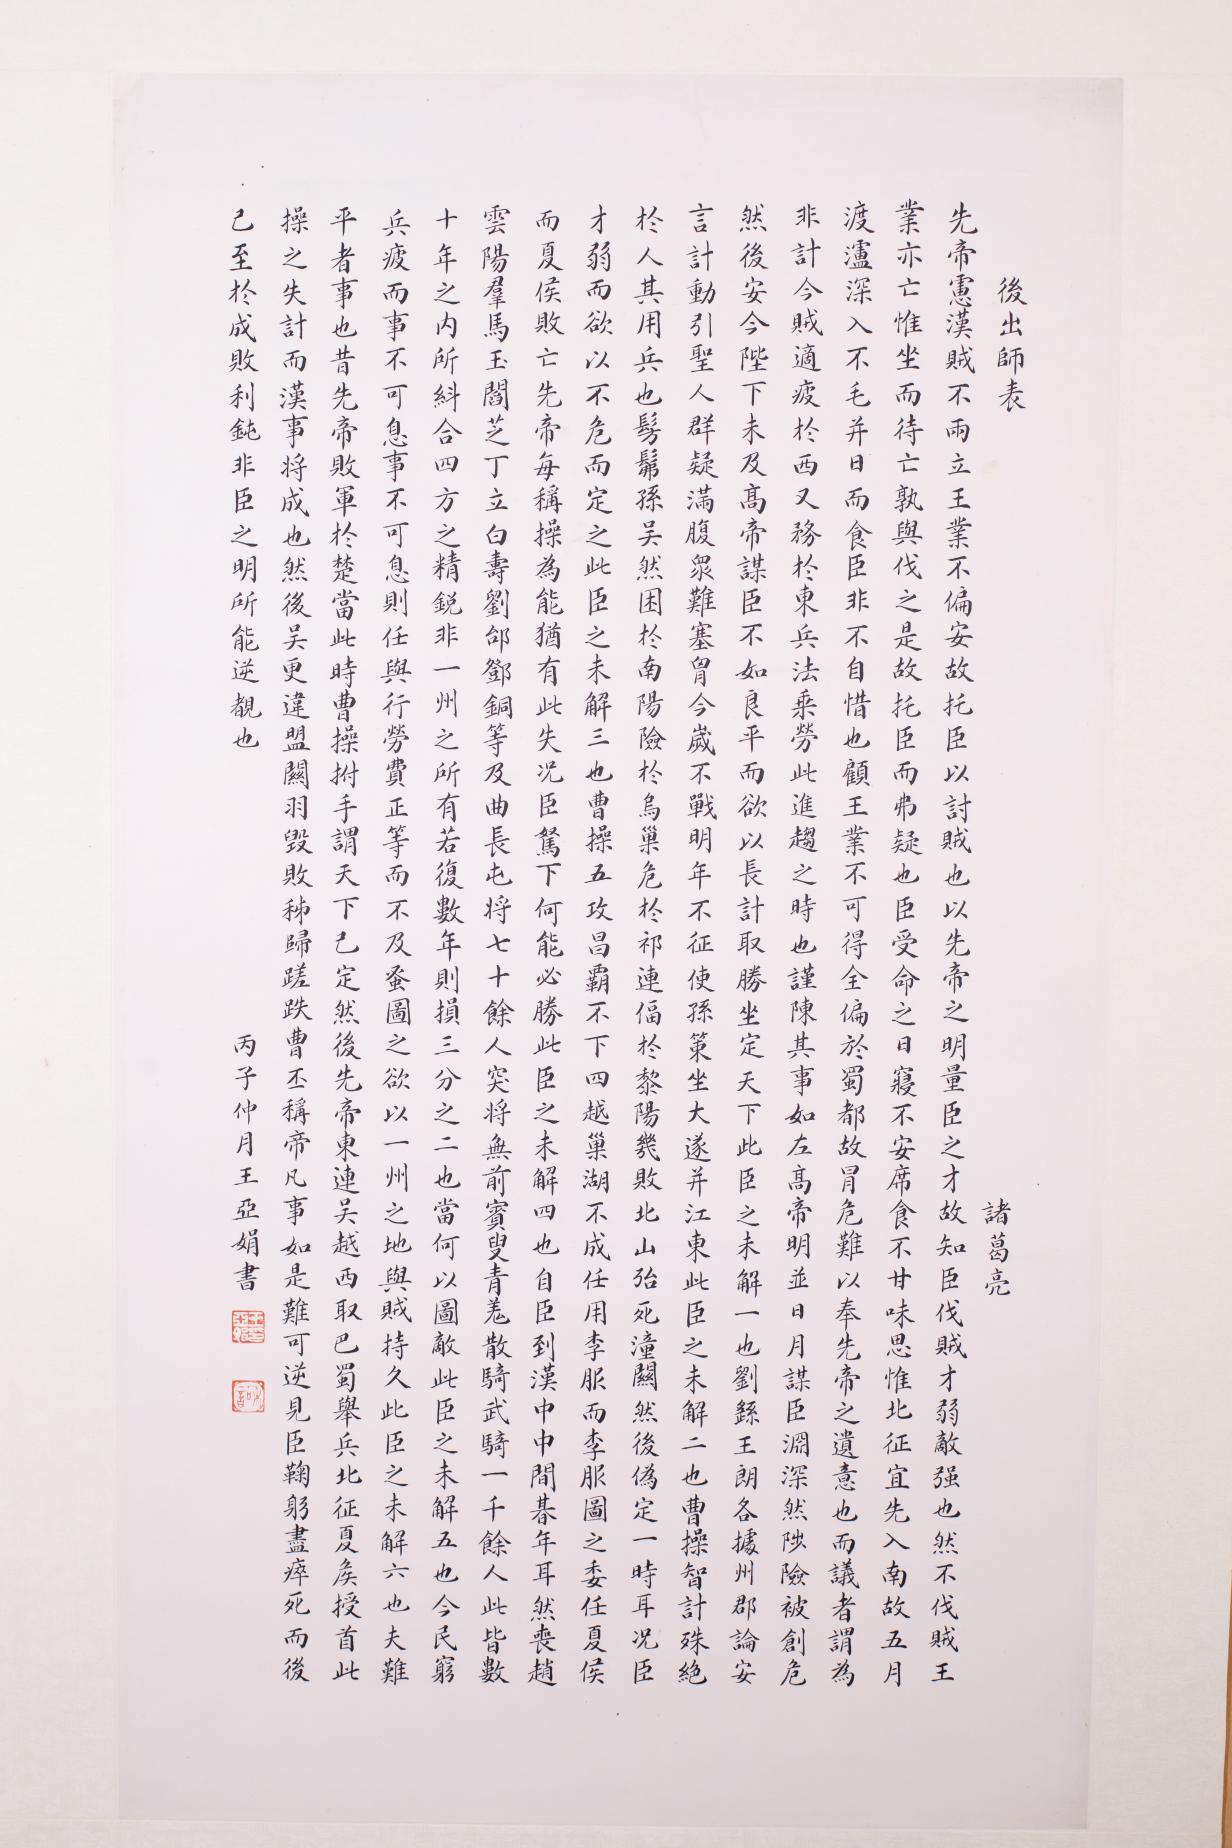 後出師表
諸葛亮
先帝慮漢賊不兩立王業不偏安故托臣以討賊也以先帝之明量臣之才故知臣伐賊才弱敵强也然不伐賊王
業亦亡惟坐而待亡孰與伐之是故托臣而弗疑也臣受命之日寢不安席食不甘味思惟北征宜先入南故五月
渡瀘深入不毛并日而食臣非不自惜也顧王業不可得全偏於蜀都故冒危難以奉先帝之遺意也而議者謂為
非計今賊適疲於西又務於東兵法乘勞此進趨之時也謹陳其事如左高帝明並日月謀臣淵深然陟險被創危
然後安今陛下未及高帝謀臣不如良平而欲以長計取勝坐定天下此臣之未解一也劉繇王朗各據州郡論安
言計動引聖人群疑滿腹眾難塞胷今歲不戰明年不征使孫策坐大遂并江東此臣之未解二也曹操智計殊絕
於人其用兵也髣髴孫吴然困於南陽險於烏巢危於祁連偪於黎陽幾敗北山殆死潼關然後偽定一時耳况臣
才弱而欲以不危而定之此臣之未解三也曹操五攻昌霸不下四越巢湖不成任用李服而李服圖之委任夏侯
而夏侯敗亡先帝每稱操為能猶有此失况臣駑下何能必勝此臣之未解四也自臣到漢中中間朞年耳然喪趙
雲陽羣馬玉閻芝丁立白壽劉郃鄧銅等及曲長屯將七十餘人突將無前賓叟青羌散騎武騎一千餘人此皆數
十年之内所糾合四方之精鋭非一州之所有若復數年則損三分之二也當何以圖敵此臣之未解五也今民窮
兵疲而事不可息事不可息則任與行勞費正等而不及蚤圖之欲以一州之地與賊持久此臣之未解六也夫難
平者事也昔先帝敗軍於楚當此時曹操拊手謂天下已定然後先帝東連吴越西取巴蜀舉兵北征夏侯授首此
操之失計而漢事将成也然後吴更違盟關羽毀敗秭歸蹉跌曹丕稱帝凡事如是難可逆見臣鞠躬盡瘁死而後
已至於成敗利鈍非臣之明所能逆覩也
丙子仲月王亞娟書